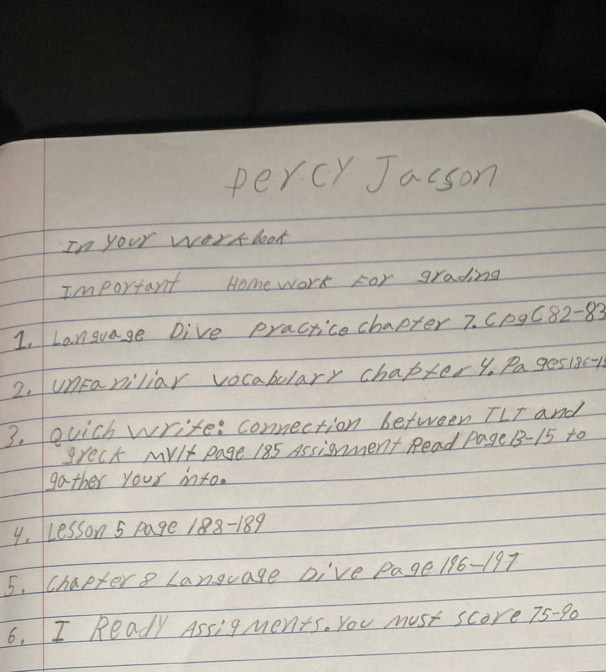 Percy Jacson
In Your workbook
Important Home work For grading
1. Language Dive practice chapter 7. (pg( 82-83
2. unfamiliar vocabulary chapter 4. Pages
3. Quick write: connection between TLT and
greek Myth page 185 Assignment Read page 13-15 to
gather your info.
4. Lesson 5 page 188-189
5. Chapter 8 Language Dive page 196-197
6. I Ready Assigments. You must score 75-90